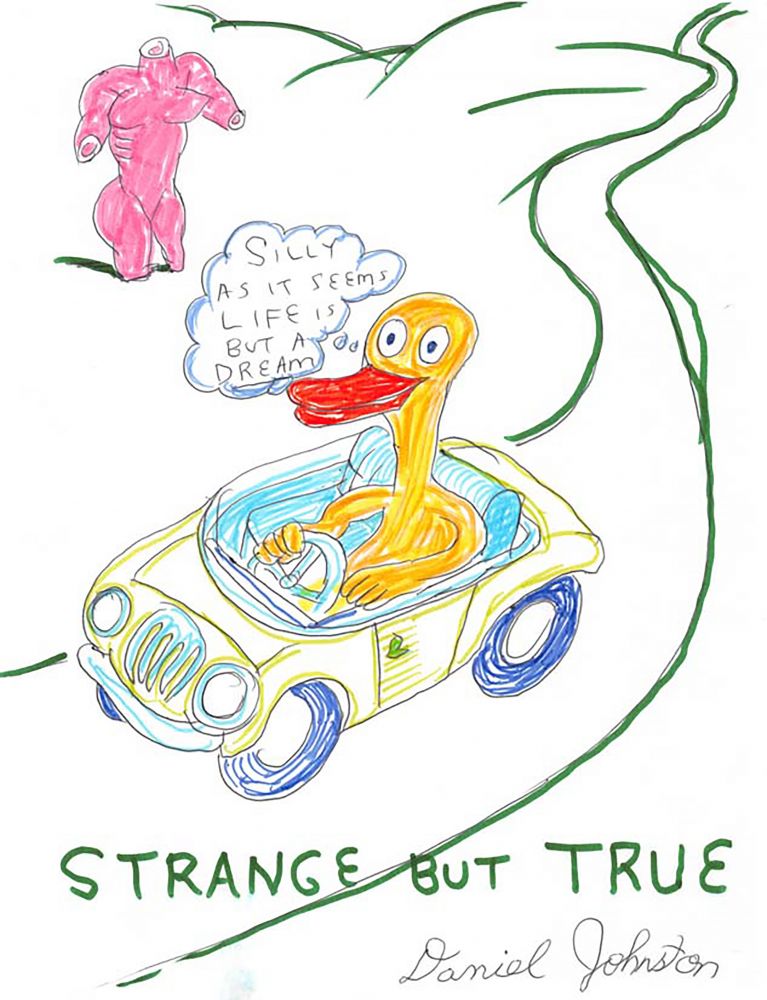 SILLY
AS IT SEEMS
LIFE IS
BUT A
DREAM
STRANGE BUT TRUE
Daniel Johnston